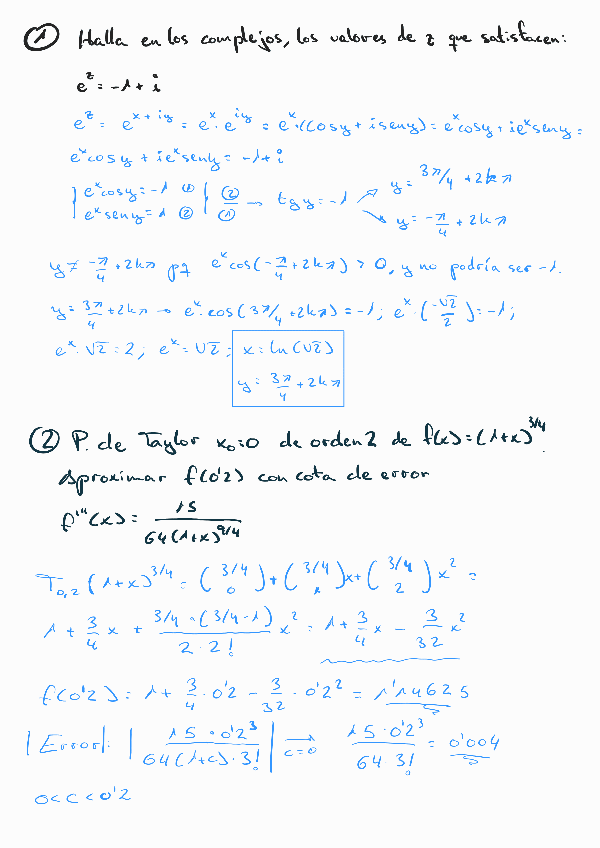 ① Halla en los complejos, los valores de z que satisfacen:
e^z = -1 + i
e^z = e^{x+iy} = e^x · e^{iy} = e^x · (cosy + i seny) = e^x cosy + ie^x seny =
e^x cosy + ie^x seny = -1 + i
e^x cosy = -1 ① | ②/① → tgy = -1 → y = 3π/4 + 2kπ
e^x seny = 1 ② | y = -π/4 + 2kπ
y ≠ -π/4 + 2kπ pq e^x cos(-π/4 + 2kπ) > 0, y no podría ser -1.
y = 3π/4 + 2kπ → e^x · cos(3π/4 + 2kπ) = -1; e^x · (-√2/2) = -1;
e^x · √2 = 2; e^x = √2; x = ln(√2)
y = 3π/4 + 2kπ
② P. de Taylor x₀=0 de orden 2 de f(x) = (1+x)^{3/4}.
Aproximar f(0'2) con cota de error
f'''(x) = 15 / 64(1+x)^{9/4}
T₀,₂ (1+x)^{3/4} = (3/4 0) + (3/4 1)x + (3/4 2) x² =
1 + 3/4 x + 3/4 · (3/4 - 1) / 2 · 2! x² = 1 + 3/4 x - 3/32 x²
f(0'2) = 1 + 3/4 · 0'2 - 3/32 · 0'2² = 1'14625
|Error|: | 15 · 0'2³ / 64(1+c) · 3! | → c=0 15 · 0'2³ / 64 3! = 0'004
0 < c < 0'2